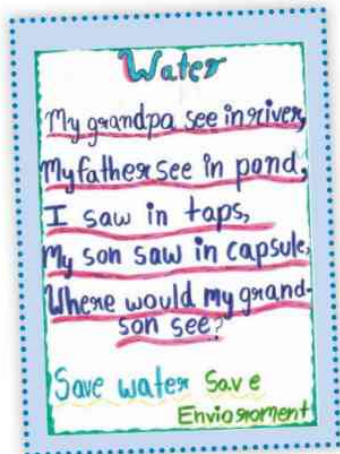 Water
My grandpa see in river,
My father see in pond,
I saw in taps,
My son saw in capsule,
Where would my grand-
son see?
Save water Save
Envioroment